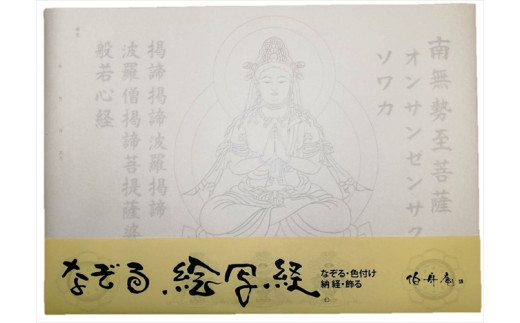 南無勢至菩薩
オンサンザンサク
ソワカ
掲諦掲諦波羅掲諦
波羅僧掲諦菩提薩婆
般若心経
なぞる絵写経
なぞる・色付け
納経・飾る